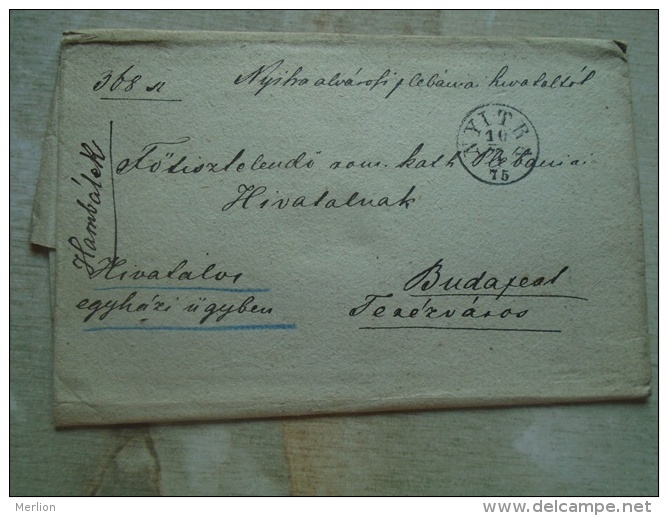 368 sz
Nyitra alvárosi plebániai hivataltól
NYITR
16
75
Főtisztelendő rom. kath. Plebániai
Hivatalnak
Hambálek
Hivatalos
egyházi ügyben
Budapest
Terézváros
Merlion
www.delcampe.net